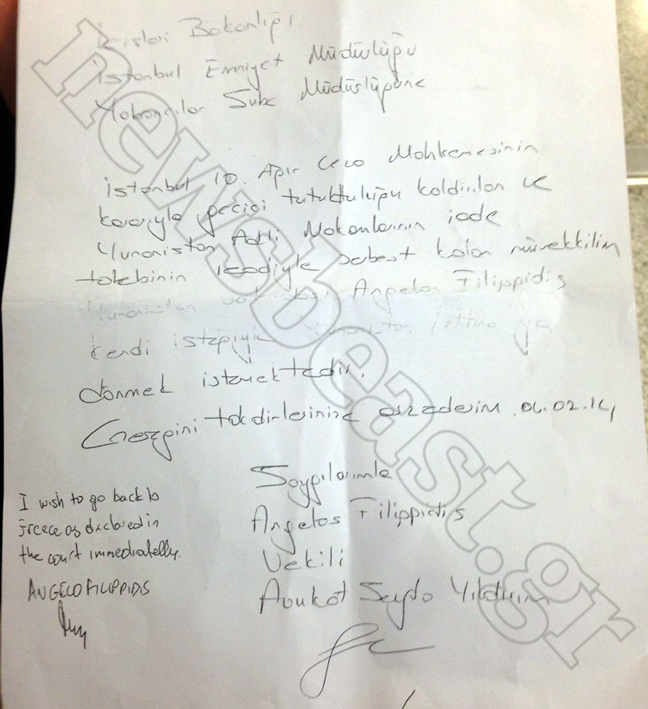 İçişleri Bakanlığı
İstanbul Emniyet Müdürlüğü
Yabancılar Şube Müdürlüğüne
İstanbul 10. Ağır Ceza Mahkemesinin
kararıyla geçici tutukluluğu kaldırılan ve
Yunanistan Adli Makamlarının iade
talebinin reddiyle serbest kalan müvekkilim
Yunanistan Angelos Filippidis
kendi isteğiyle
dönmek istemektedir.
Gereğini takdirlerinize arz ederim. 04.02.14
Saygılarımla
Angelos Filippidis
Vekili
Avukat Seyda Yıldırım
I wish to go back to
Greece as declared in
the court immediatelly.
ANGELO FILIPPIDIS
newsbeast.gr